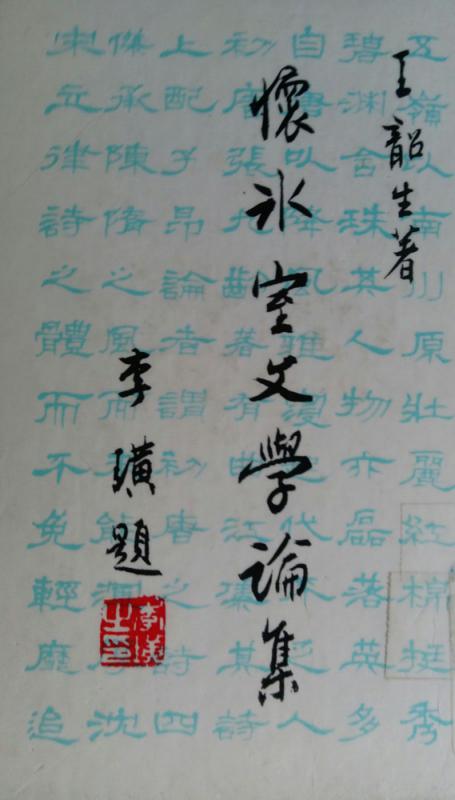 王韶生著
懷冰室文學論集
李璜題
李璜之印
五嶺以南川原壯麗紅棉挺秀
碧淵含珠其人物亦磊落英多
自唐以降風雅代不乏人
初唐張九齡著有曲江集其詩
上配子昂論者謂初唐之詩四
傑承陳隋之風而沈
宋立律詩之體而不免輕靡追